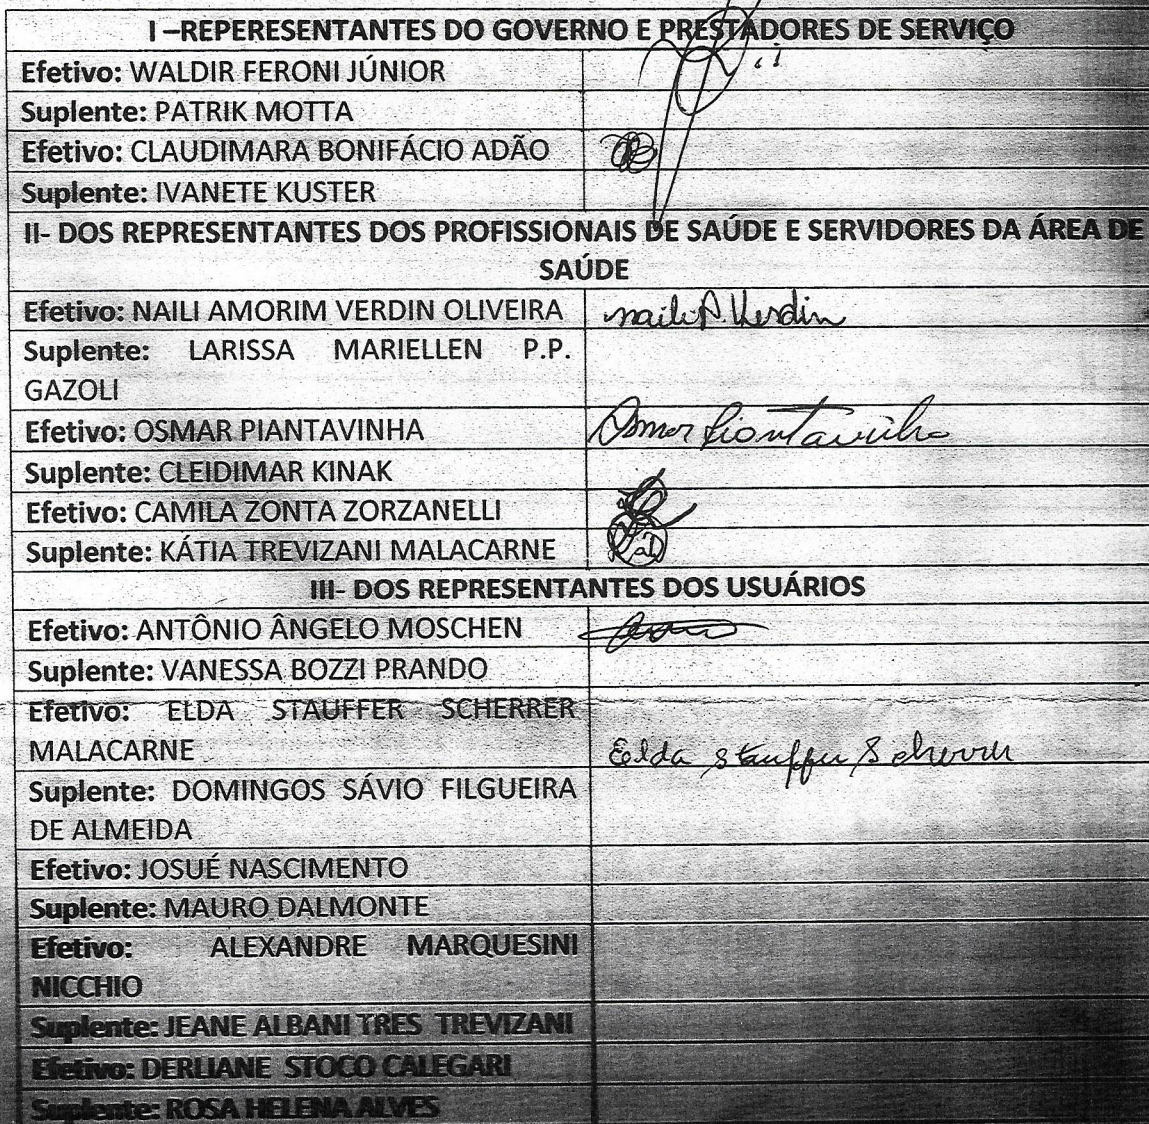 I –REPERESENTANTES DO GOVERNO E PRESTADORES DE SERVIÇO
Efetivo: WALDIR FERONI JÚNIOR
Suplente: PATRIK MOTTA
Efetivo: CLAUDIMARA BONIFÁCIO ADÃO
Suplente: IVANETE KUSTER
II- DOS REPRESENTANTES DOS PROFISSIONAIS DE SAÚDE E SERVIDORES DA ÁREA DE
SAÚDE
Efetivo: NAILI AMORIM VERDIN OLIVEIRA naili A. Verdin
Suplente: LARISSA MARIELLEN P.P.
GAZOLI
Efetivo: OSMAR PIANTAVINHA Osmar Piantavinha
Suplente: CLEIDIMAR KINAK
Efetivo: CAMILA ZONTA ZORZANELLI
Suplente: KÁTIA TREVIZANI MALACARNE
III- DOS REPRESENTANTES DOS USUÁRIOS
Efetivo: ANTÔNIO ÂNGELO MOSCHEN
Suplente: VANESSA BOZZI PRANDO
Efetivo: ELDA STAUFFER SCHERRER
MALACARNE Elda Stauffer Scherrer
Suplente: DOMINGOS SÁVIO FILGUEIRA
DE ALMEIDA
Efetivo: JOSUÉ NASCIMENTO
Suplente: MAURO DALMONTE
Efetivo: ALEXANDRE MARQUESINI
NICCHIO
Suplente: JEANE ALBANI TRES TREVIZANI
Efetivo: DERLIANE STOCO CALEGARI
Suplente: ROSA HELENA ALVES